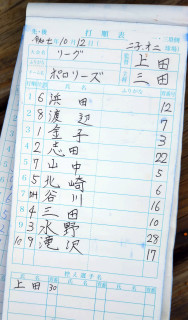 打順表
令和七年10月12日
リーグ
上田
ポロリーズ
三田
1 6 浜田 12
2 8 渡辺 7
3 1 金子 3
4 2 志田 22
5 7 山中 5
6 5 北崎 6
谷川 16
8 4 三田 10
9 3 水野 28
10 9 滝沢 17
控え選手名
上田 30